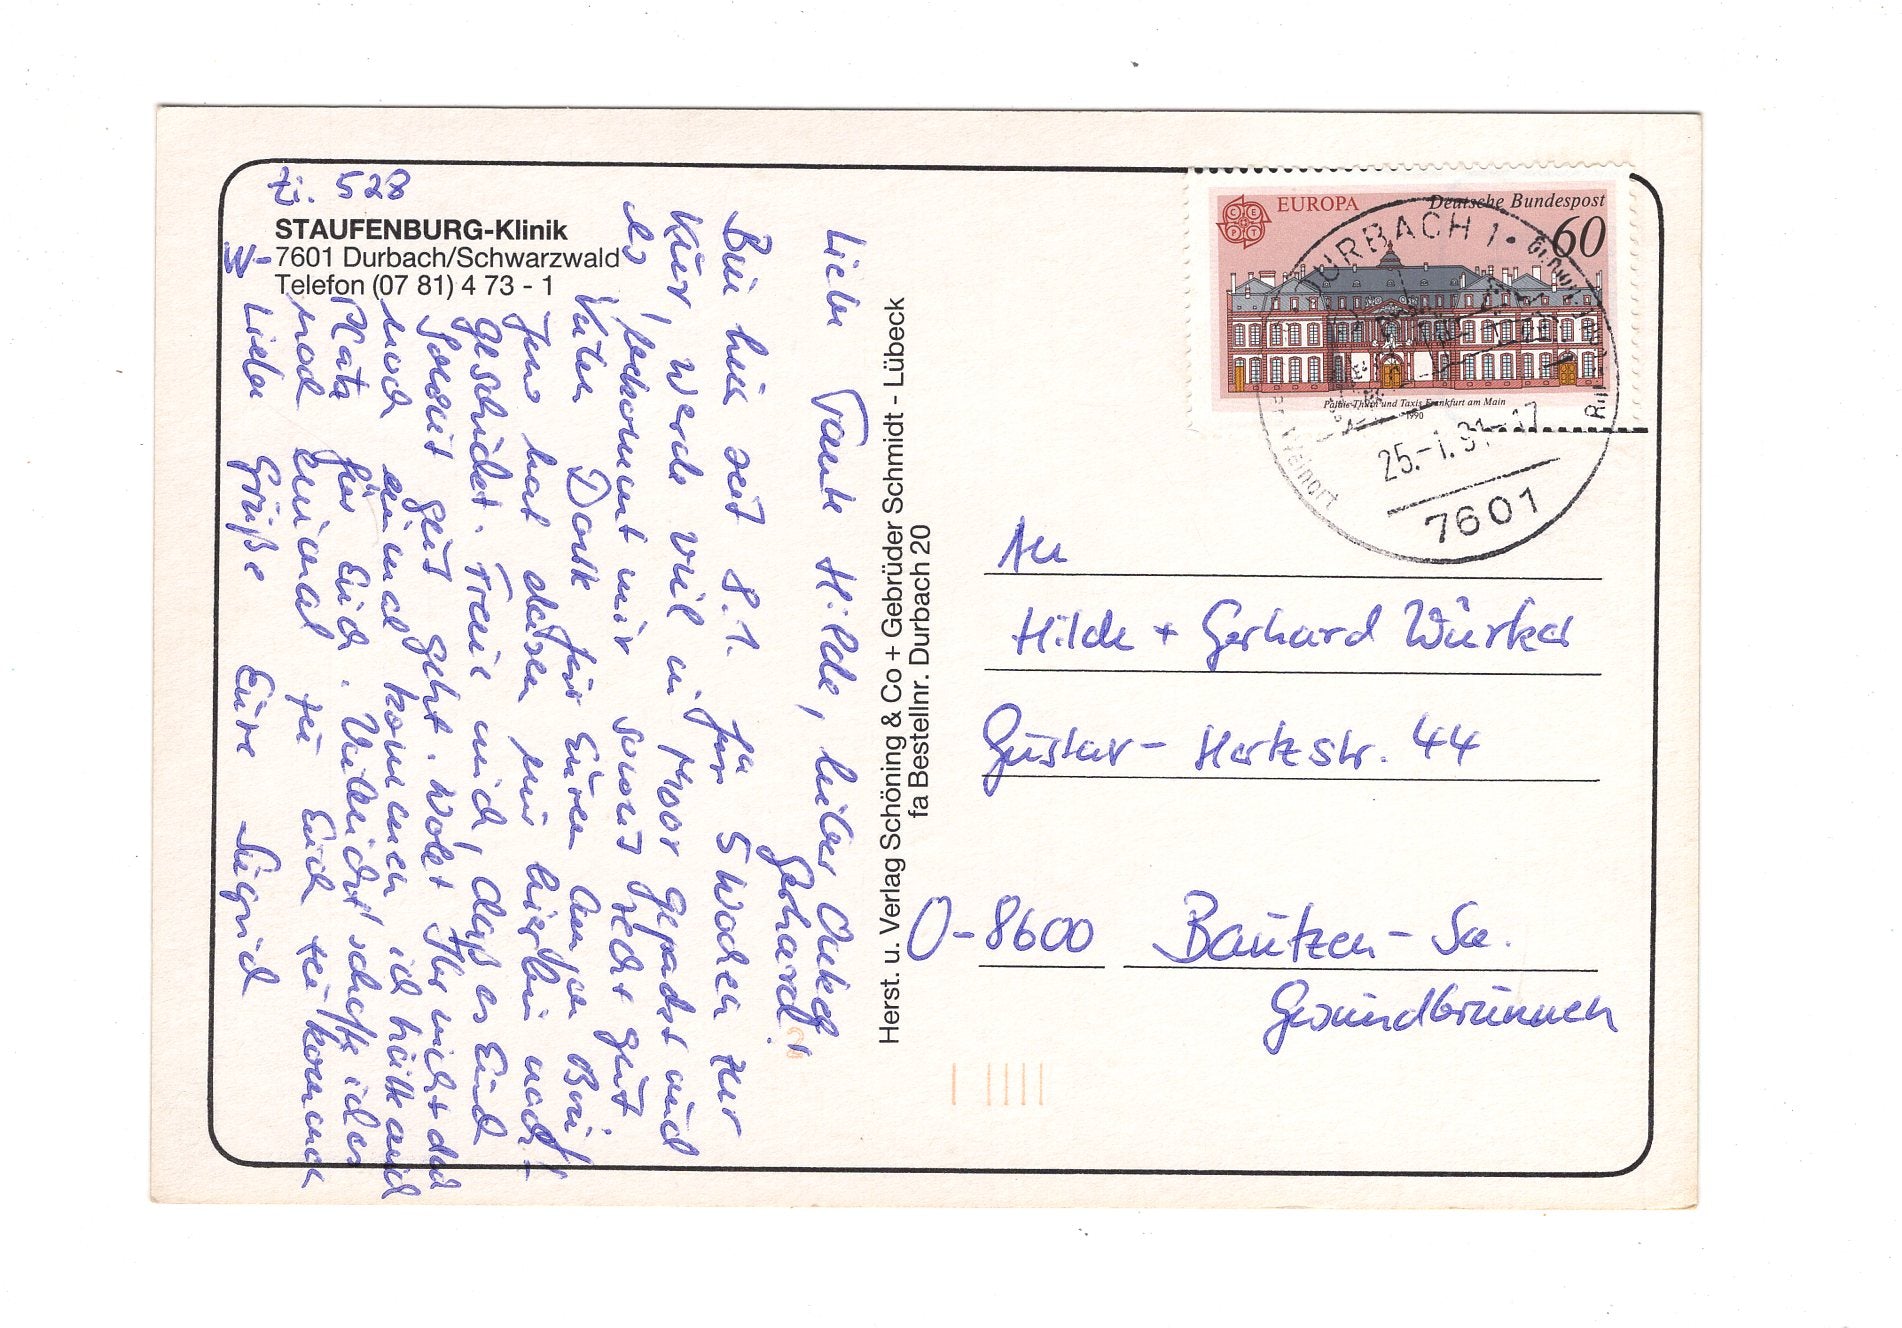 Zi. 528
STAUFENBURG-Klinik
W-7601 Durbach/Schwarzwald
Telefon (07 81) 4 73 - 1
Liebe Tante Hilde, lieber Onkel
Gerhard!
Bin hier seit 8.1. für 5 Wochen zur
Kur, werde viel in Moor gepackt und
es bekommt mir sonst recht gut
Vielen Dank für Euren Brief!
Jens hat diesen mir hierhin nach-
geschickt. Freue mich, daß es Euch
soweit gut geht. Wolet Ihr nicht
noch einmal kommen ich hätte auch
Platz für Euch. Vielleicht schaffe ich es
noch einmal zu Euch zu kommen
Liebe Grüße Eure Sigrid
Herst. u. Verlag Schöning & Co + Gebrüder Schmidt - Lübeck
fa Bestellnr. Durbach 20
EUROPA
Deutsche Bundespost
60
CEPT
Palais Thurn und Taxis Frankfurt am Main
1990
DURBACH 1
Weinort
25.-1.91-17
7601
An
Hilde + Gerhard Würker
Gustav-Hertzstr. 44
O-8600 Bautzen-Sa.
Gesundbrunnen